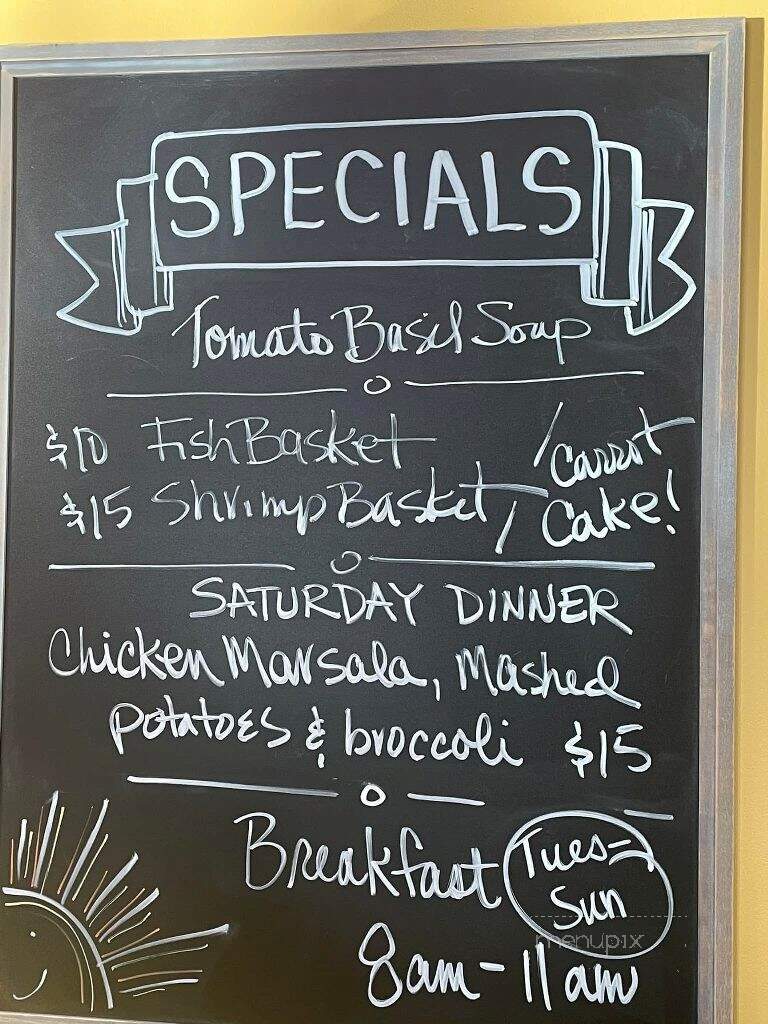 SPECIALS
Tomato Basil Soup
$10 Fish Basket
$15 Shrimp Basket
/ Carrot
/ Cake!
SATURDAY DINNER
Chicken Marsala, Mashed
potatoes & broccoli $15
Breakfast Tues-
Sun
8am-11am
menupix